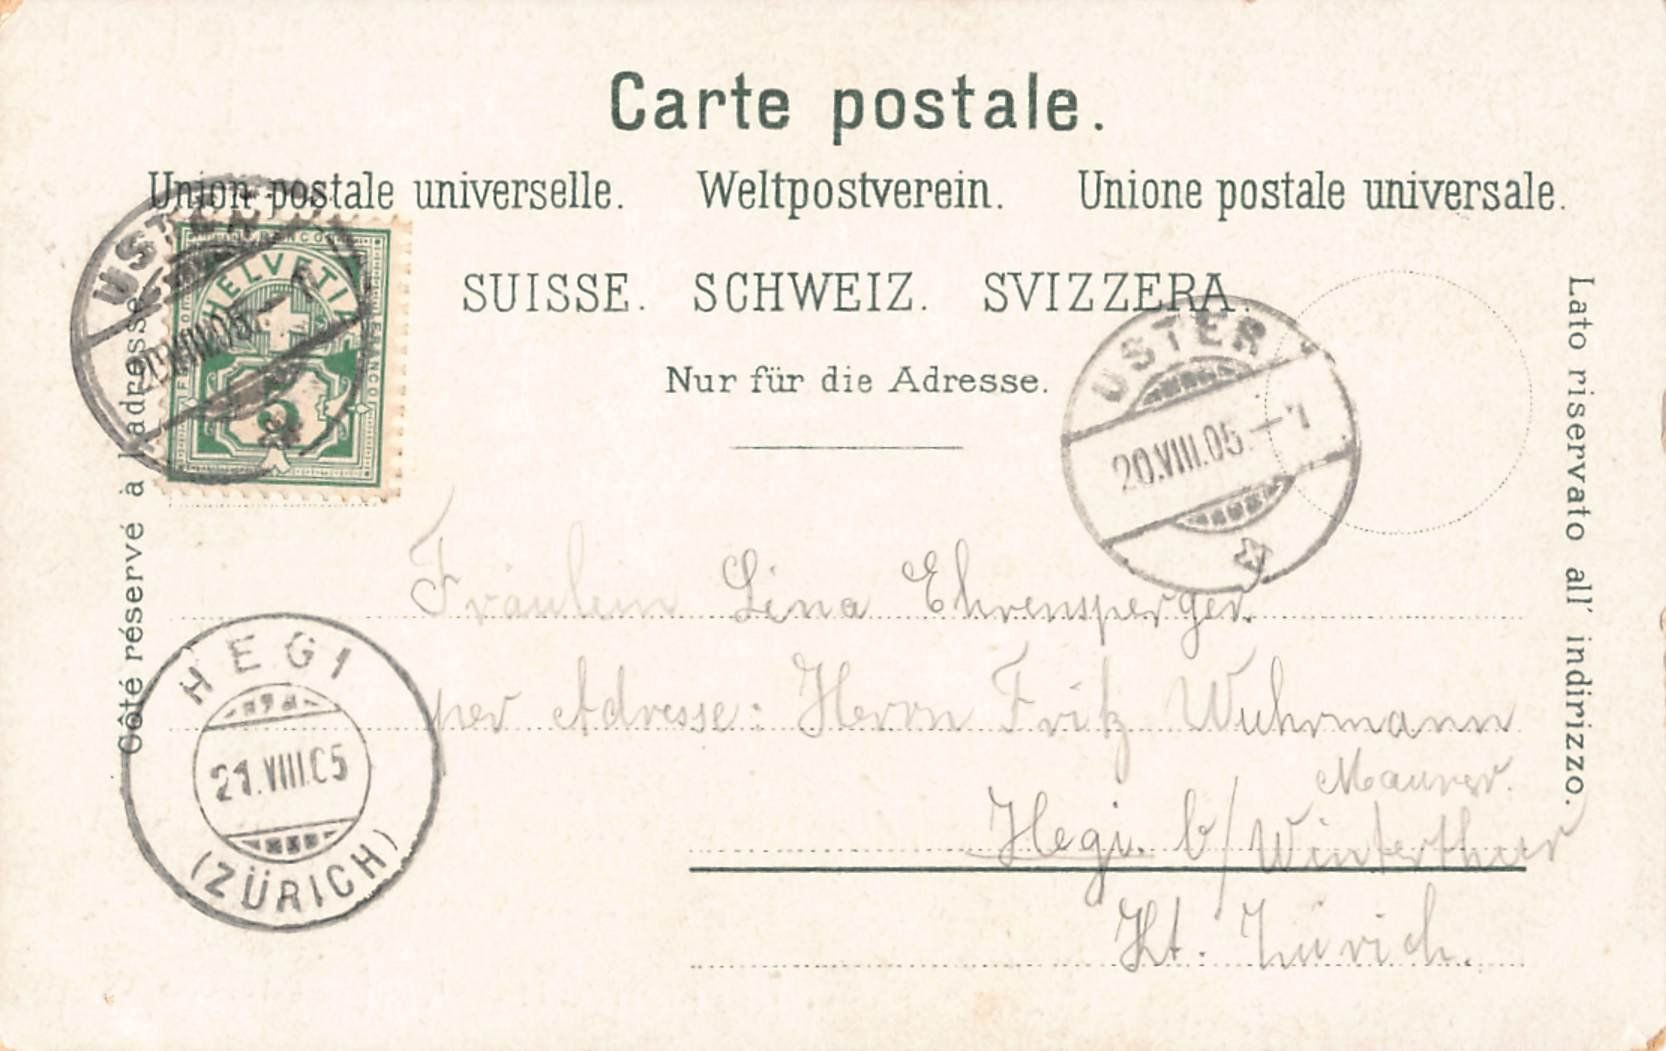 Carte postale.
Union postale universelle. Weltpostverein. Unione postale universale.
SUISSE. SCHWEIZ. SVIZZERA.
Nur für die Adresse.
Côté réservé à l'adresse.
Lato riservato all' indirizzo.
FRANCO
HELVETIA
FRANCO
USTER
20.VIII.05.
USTER
20.VIII.05.—7
Fräulein Lina Ehrensperger.
per Adresse: Herrn Fritz Wuhrmann
Maurer.
Hegi. b/Winterthur
Kt. Zürich.
HEGI
21.VIII.05
(ZÜRICH)